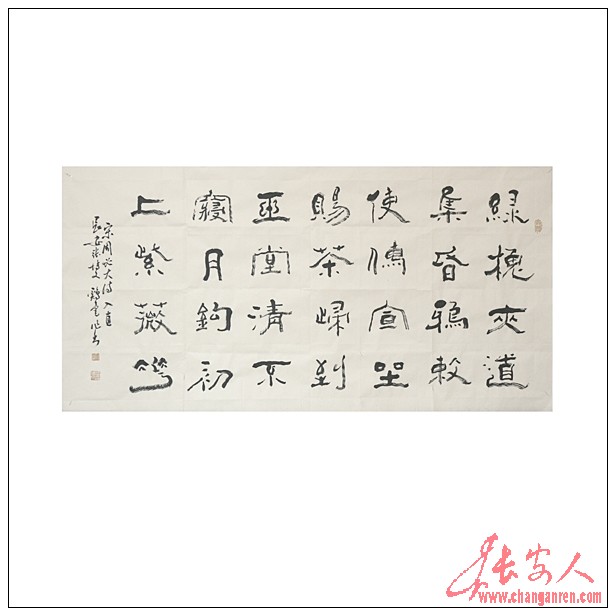 緑槐夾道
集昏鴉敕
使傳宣坐
賜茶歸到
玉堂清不
寢月鈎初
上紫薇花
宋周必大詩入直
长安人
www.changanren.com